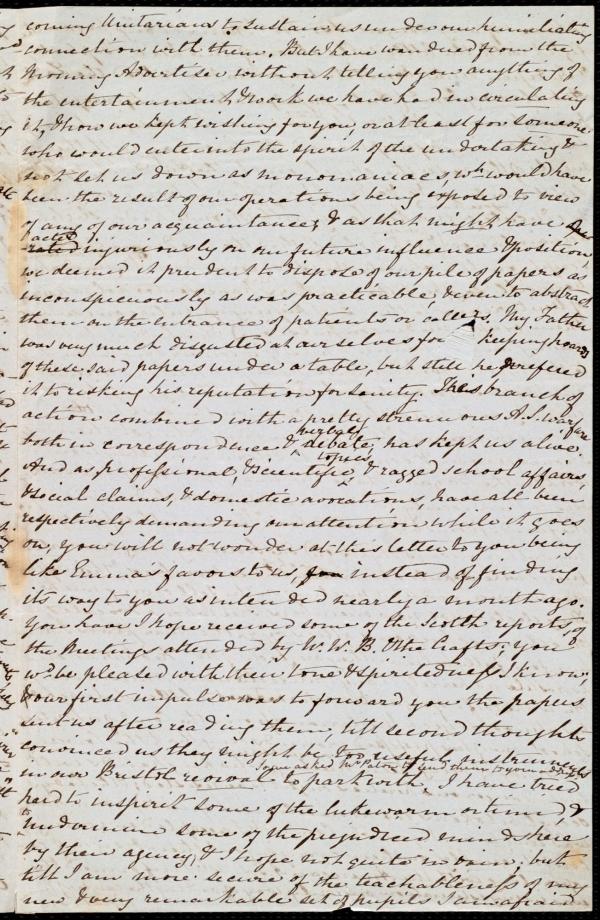 coming Unitarians to sustain us under our humiliating
connection with them. But I have wandered from the
Morning Advertiser without telling you anything of
the entertainment & work we have had in circulating
it, & how we kept wishing for you, or at least for someone
who would enter into the spirit of the undertaking &
not set us down as monomaniacs, wh. would have
been the result of our operations being exposed to view
of any of our acquaintance; & as that might have
acted injuriously on our future influence & position,
we deemed it prudent to dispose of our pile of papers as
inconspicuously as was practicable, & even to abstract
them on the entrance of patients or callers. My Father
was very much disgusted at ourselves for keeping hoards
of these said papers under a table, but still he preferred
it to risking his reputation for sanity. This branch of
action combined with a pretty strenuous A.S. warfare
both in correspondence & verbal debate, has kept us alive.
And as professional, & scientific topics, & ragged school affairs,
& social claims, & domestic avocations, have all been
respectively demanding our attention while it goes
on, you will not wonder at this letter to you being
like Emma's favors to us, instead of finding
its way to you as intended nearly a month ago.
You have I hope received some of the Scotch reports, of
the Meetings attended by W. W. B. & the Crafts; you
wd. be pleased with their tone & spiritedness I know,
& our first impulse was to forward you the papers
sent us after reading them, till second thoughts
convinced us they might be too useful instruments
in our Bristol revival to part with, I have tried
hard to inspirit some of the lukewarm ones, &
to undermine some of the prejudiced minds here
by their agency, & I hope not quite in vain; but
till I am more secure of the teachableness of my
new & very remarkable set of pupils I am afraid